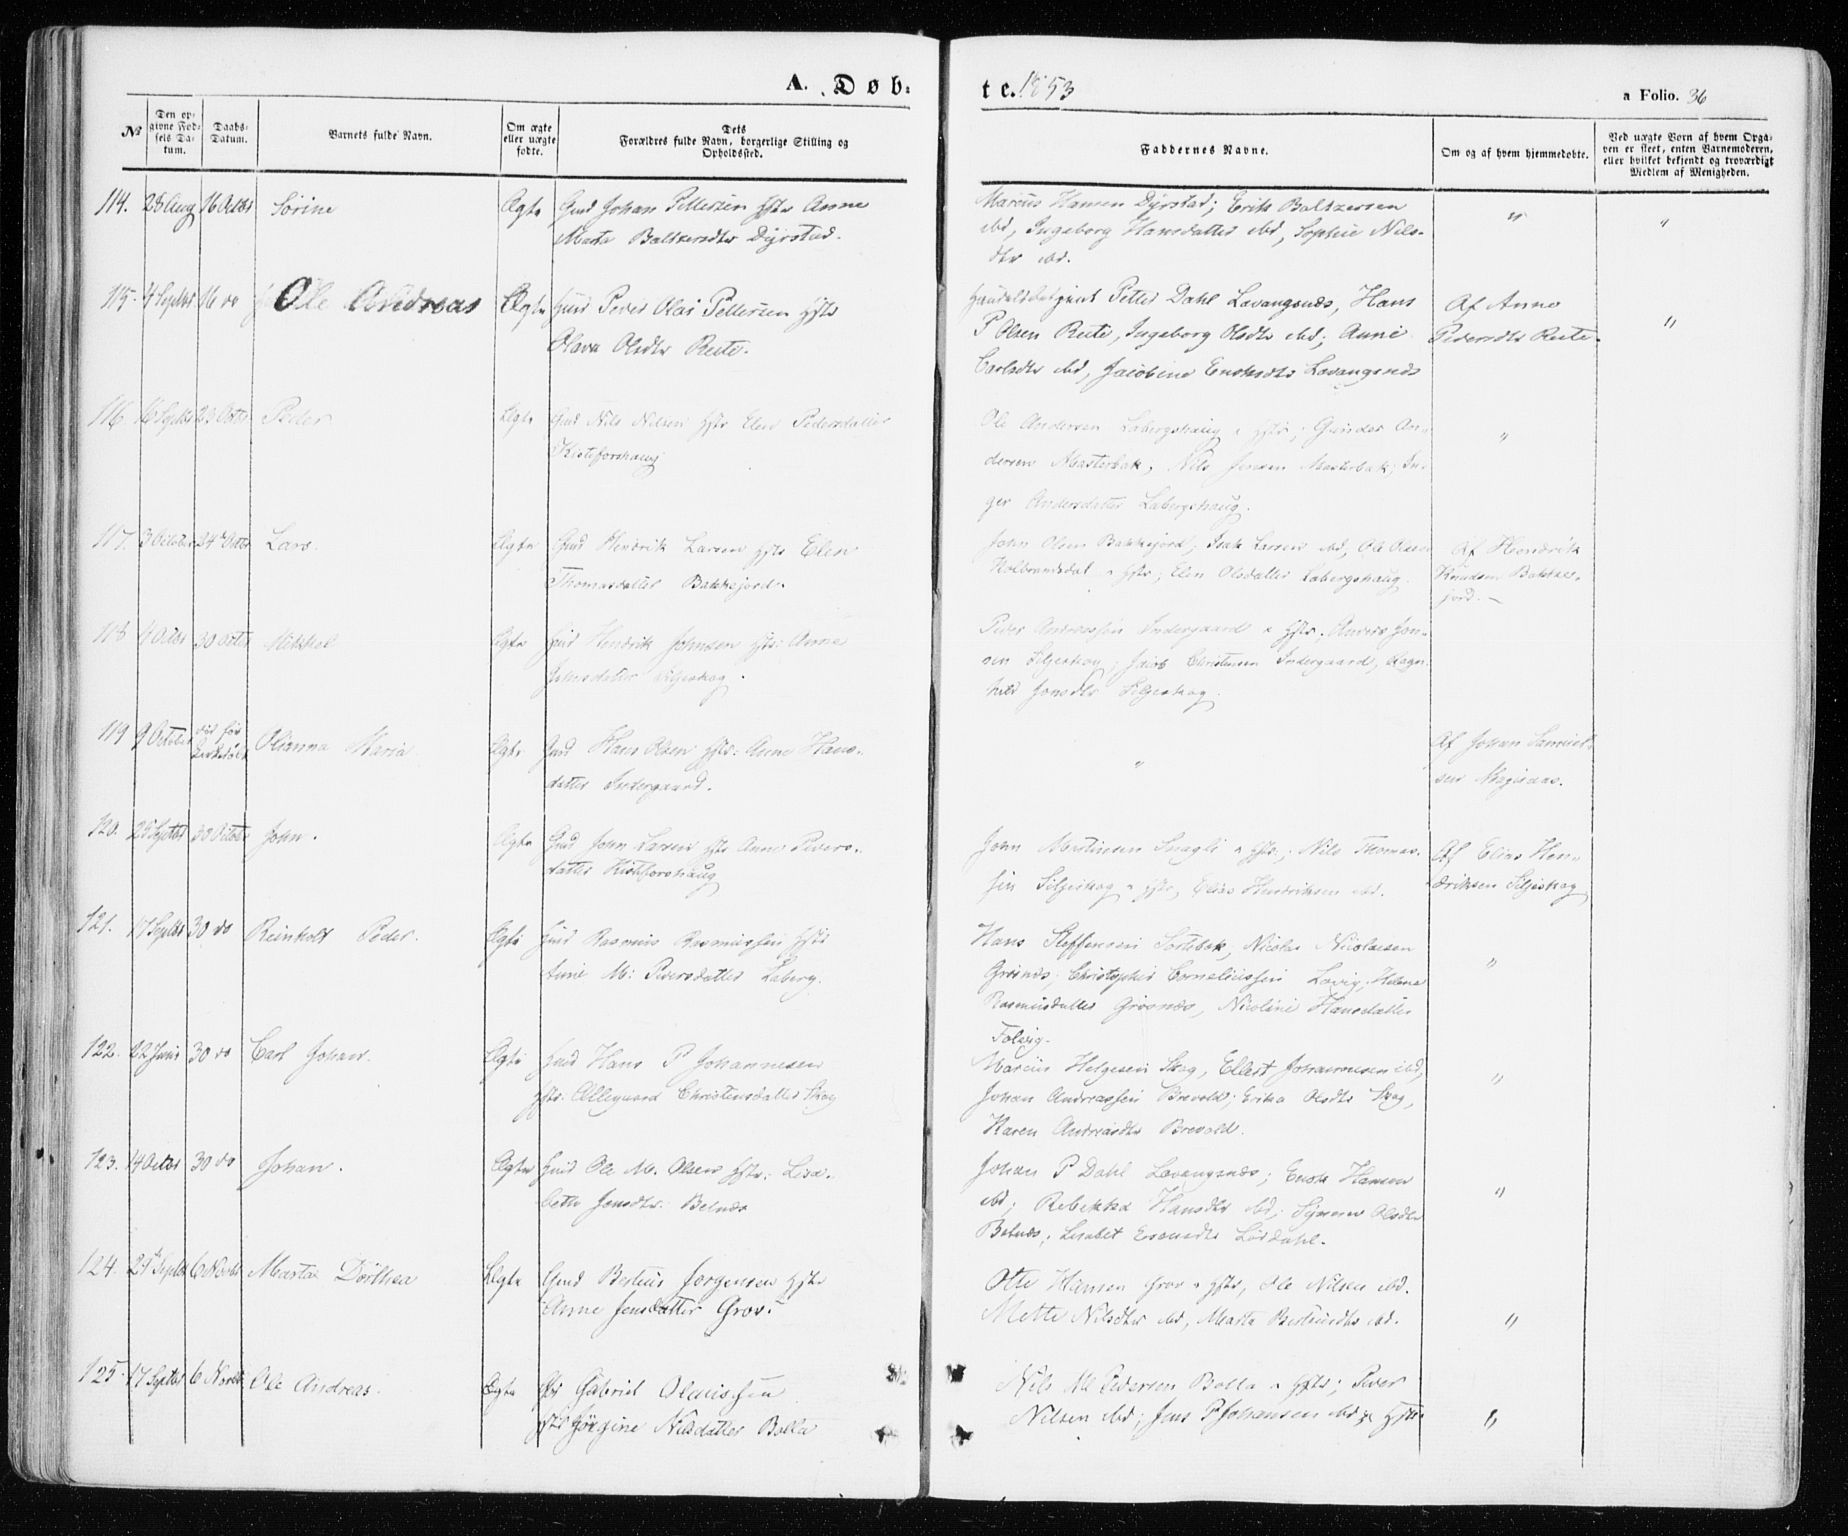 A. Døb:
te. 1853
a Folio. 36
No
Den op-
givne Fød-
sels Da-
tum.
Daabs-
Datum.
Barnets fulde Navn.
Om ægte
eller uægte
fødte.
Dets
Forældres fulde Navn, borgerlige Stilling og
Opholdssted.
Faddernes Navne.
Om og af hvem hjemmedøbte.
Ved uægte Børn af hvem Opga-
ven er skeet, enten Barnemoderen,
eller hvilket bekjendt og troværdigt
Medlem af Menigheden.
114. 28 Aug 16 Octbr Sørine Ægte Gmd Johan Pettersen Hstr Anne
Marta Baltzersdtr Dyrstad.
Marcus Hansen Dyrstad; Erik Baltzersen
ibd, Ingeborg Hansdatter ibd, Sophie Nils-
dtr ibd.
" "
115. 4 Septbr 16 do Ole Andreas Ægte Huusd Peder Olai Pettersen Hstr
Olava Olsdtr Reite.
Petter Dahl Lavangsnæs, Hans
P Olsen Reite, Ingeborg Olsdtr ibd; Anne
Carlsdtr ibd, Jacobine Enoksdtr Lavangsnæs
Af Anne
Pedersdtr Reite.
"
116. 16 Septbr 23 Octbr Peder Ægte Gmd Nils Nilsen Hstr Elen Pedersdatter
Kristoforshaug
Ole Andersen Labergshaug & Hstr; Gunder An-
dersen Masterbak; Nils Jensen Masterbak; In-
ger Andersdatter Labergshaug.
"
117. 3 October 24de Octbr Lars. Ægte Gmd Hendrik Larsen Hstr Elen
Thomasdatter Bakkejord.
John Olsen Bakkejord; Isak Larsen ibd, Ole Olsen
& Hstr; Elen Olsdatter Labergshaug.
Af Hendrik
Knudsen Bakke-
jord.-
118 4 Octbr 30 Octbr Mikkel Ægte Hmd Hendrik Johnsen Hstr: Anne
Jonsdatter Siljeskog.
Peder Andreassen Indergaard & Hstr; Anders Jon-
sen Siljeskog; Jacob Christensen Indergaard, Ragn-
hild Jonsdtr Siljeskog.
119 9 October død før
Olianna Maria. Ægte Gmd Hans Olsen Hstr: Anne Hans-
datter Indergaard.
"
Af Johan Samuel-
sen
120. 25 Septbr 30 October John. Ægte Gmd John Larsen Hstr Anne Peders-
datter Kistoforshaug
John Mortinsen & Hstr; Nils Thomas-
sen Siljeskog & Hstr, Elias Hendriksen ibd.
Af Elias Hen-
driksen Siljeskog
121. 17 Septbr 30 do Reinholt Peder. Ægte Hmd Rasmus Rasmussen Hstr
Anne M: Pedersdatter Laberg.
Hans Steffensen Sortebak, Nicolai Nicolaisen
Grøsnæs; Christopher Corneliussen Lavig; Helena
Rasmusdatter Grøsnæs, Nicoline Hansdatter
Folvig.
"
122. 22 Juni 30 do Carl Johan. Ægte Hmd Hans P Johannesen
Hstr: Allegaard Christensdatter Skog
Marcus Helgesen Skog, Ellert Johannesen ibd,
Johan Andreassen Brevold; Erika Olsdtr Skog,
Karen Andreasdtr Brevold.
"
123. 14 Octbr 30 do Johan. Ægte Hmd Ole M. Olsen Hstr: Lisa-
beth Jonsdtr: Belnæs
Johan P Dahl Lavangsnæs; Enok Hansen
ibd; Rebekka Hansdtr ibd; Olsdtr
Belnæs; Lisabet
"
124. 27 Septbr 6 Novbr Marta Dorthea Ægte Gmd Bertius Jørgensen Hstr
Anne Jensdatter Grov.
Otte Hansen Grov & Hstr, Ole Nilsen ibd.
Mette Nilsdtr ibd, Marta ibd.
"
125. 17 Septbr 6 Novbr Ole Andreas. Ægte Gabriel Olaussen
Hstr Jørgine Nilsdatter Bolla
Nils M Pedersen Bolla & Hstr; Peder
Nilsen ibd; Jens P Johansen ibd & Hstr
"